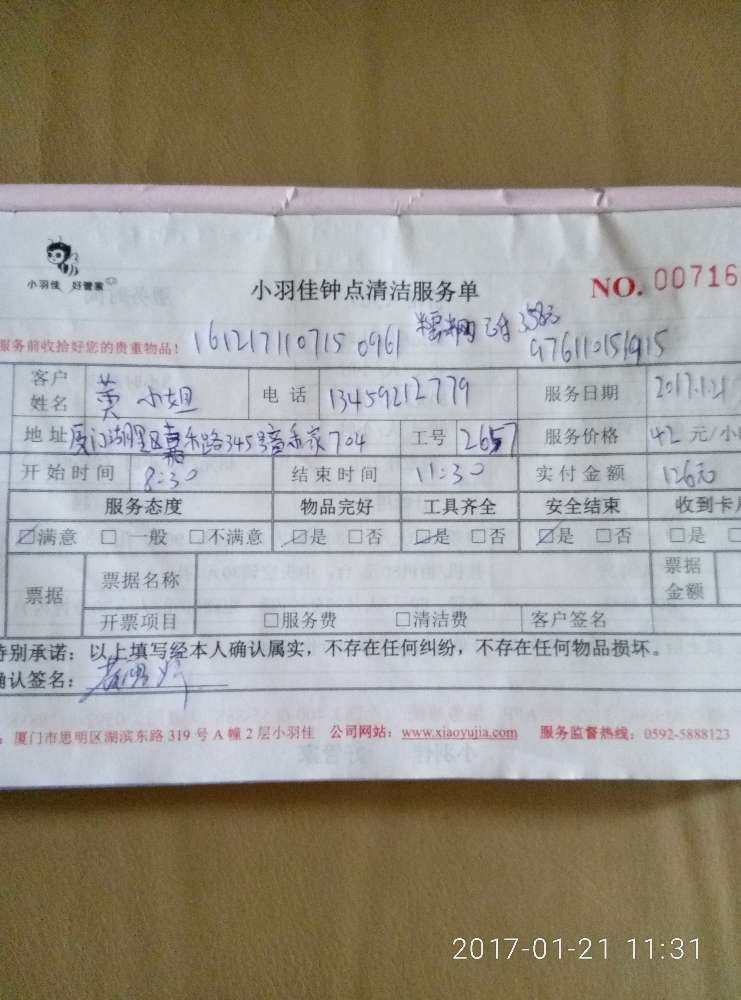 小羽佳 好管家
小羽佳钟点清洁服务单
NO. 00716
服务前收拾好您的贵重物品!
1612171107150961 已付358元
976110151915
客户姓名 黄小姐 电话 13459212779 服务日期 2017.1.21
地址 厦门湖里区嘉禾路345号 704 工号 2657 服务价格 42 元/小
开始时间 8:30 结束时间 11:30 实付金额 126元
服务态度 物品完好 工具齐全 安全结束 收到卡
☑满意 □一般 □不满意 ☑是 □否 ☑是 □否 ☑是 □否 □是 □
票据 票据名称 票据金额
开票项目 □服务费 □清洁费 客户签名
特别承诺：以上填写经本人确认属实，不存在任何纠纷，不存在任何物品损坏。
确认签名：
：厦门市思明区湖滨东路 319 号 A 幢 2 层小羽佳 公司网站：www.xiaoyujia.com 服务监督热线：0592-5888123
2017-01-21 11:31